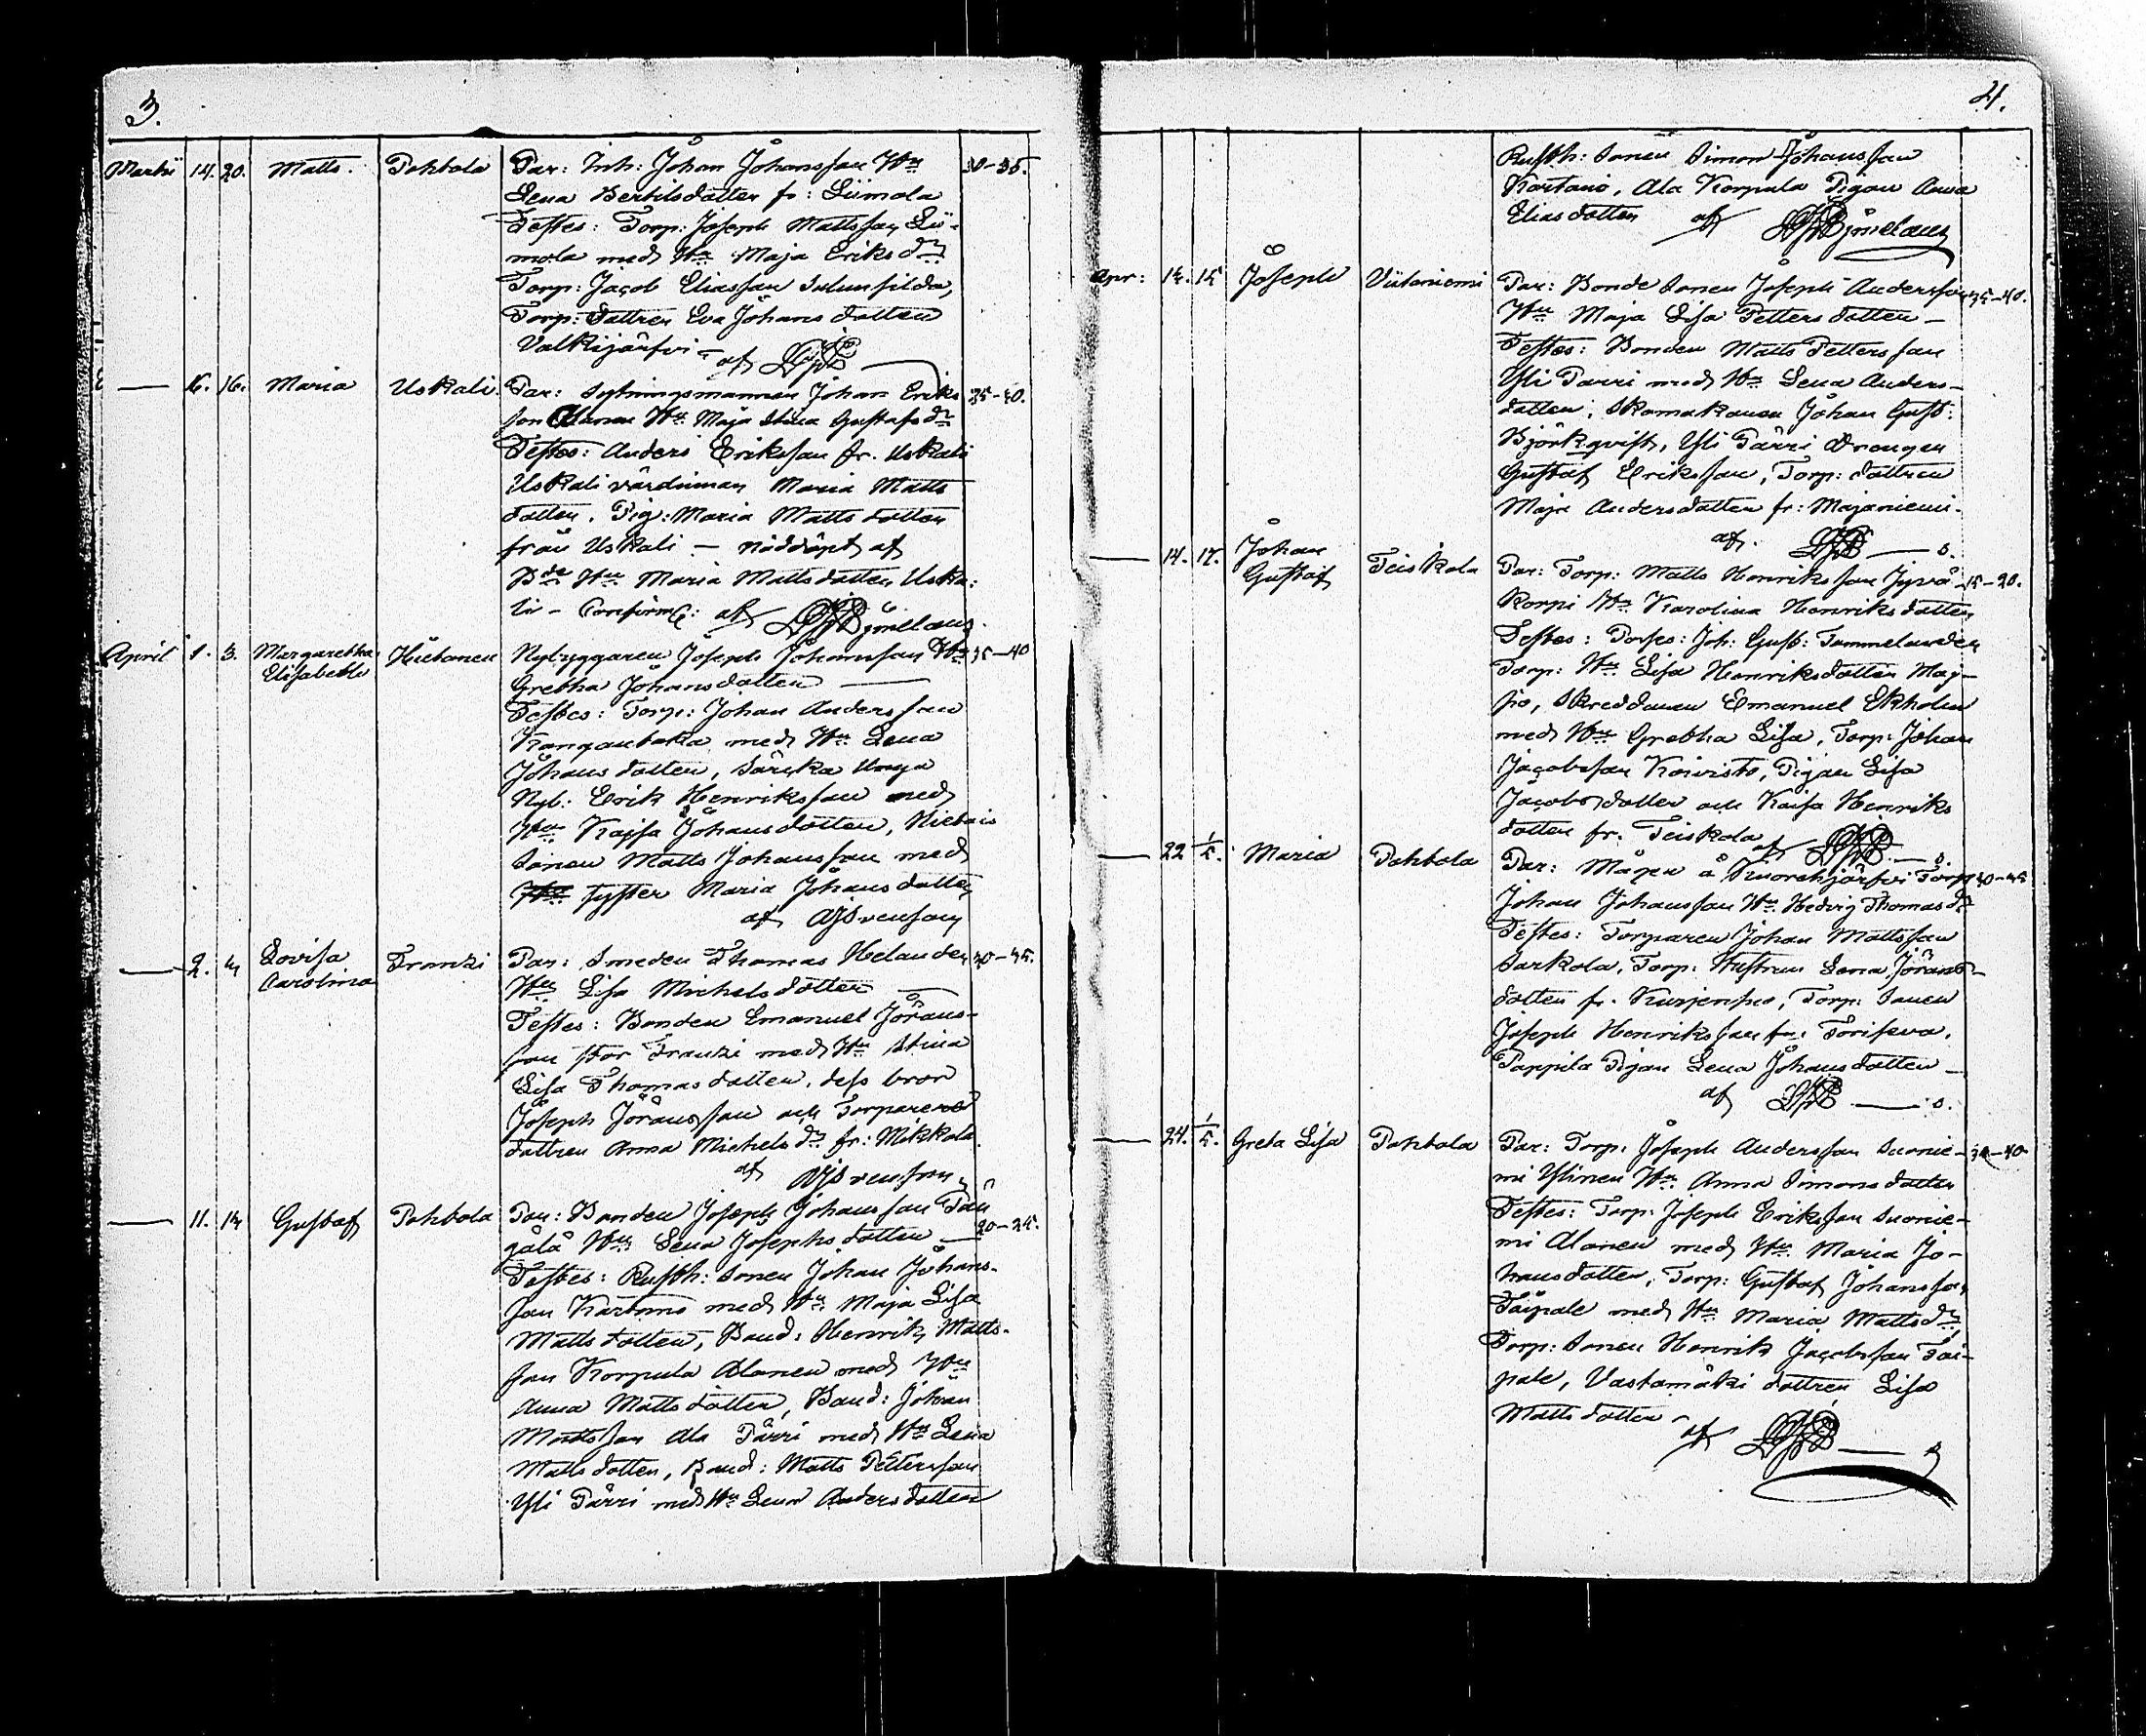 3.
Martii 14. 20. Matts. Pohtola Par: Inh: Johan Johansson Hu 30-35.
Lena Bertilsdotter fr: Liimola
Testes: Torp: Joseph Mattsson Lii-
mola med Hu Maja Eriksdr
Torp: Jacob Eliasson
Torp: Dottren Eva Johansdotter
Valkijärfvi - af
— 16. 16. Maria Uskali. Par: Sytningsmannen Johan Eriks 35-40.
son Alanen Hu Maja Stina Gustafsdr
Testes: Anders Eriksson fr. Uskali
Uskali värdinnan Maria Matts
dotter. Pig: Maria Mattsdotter
från Uskali - nöddöpt af
Bde Hu Maria Mattsdotter Uska-
li - Confirm: af Björnelaus.
April 1. 3. Margaretha Elisabeth Hietanen Nybyggaren Joseph Johansson Hu 35-40
Gretha Johansdotter —
Testes: Torp: Johan Andersson
Kangantaka med Hu Lena
Johansdotter, Särcka unga
Nyb: Erik Henriksson med
Hu Kajsa Johansdotter, Hietais
sonen Matts Johansson med
syster Maria Johansdotter
af Svenson
— 2. 4 Lovisa Carolina Franzi Par: Smeden Thomas Helander 30-35.
Hu Lisa Michelsdotter —
Testes: Bonden Emanuel Jörans-
son Stor Franzi med Hu Stina
Lisa Thomasdotter, dess bror
Joseph Jöransson och Torpare
dottren Anna Michelsdr fr: Mikkola.
af Svenson
— 11. 14 Gustaf Pohtola Par: Bonden Joseph Johansson Pän
gälä Hu Lena Josephsdotter — 20-25.
Testes: Rusth: sonen Johan Johans-
son Kartano med Hu Maja Lisa
Mattsdotter, Bond: Henrik Matts-
son Korpula Alanen med Hu
Anna Mattsdotter, Bond: Johan
Mattsson Ala Pärri med Hu Lena
Mattsdotter, Bond: Matts Pettersson
Yli Pärri med Hu Lena Andersdotter
4.
Rusth: Sonen Simon Johansson
Kartano, Ala Korpula Pigan Anna
Eliasdotter af Björnelaus
Apr: 12. 15 Joseph Viitaniemi Par: Bonde Sonen Joseph Andersson 35-40.
Hu Maja Lisa Pettersdotter —
Testes: Bonden Matts Pettersson
Yli Parri med Hu Lena Anders-
dotter, Skomakaren Johan Gust:
Björkqvist, Yli Pärri Drängen
Gustaf Eriksson, Torp: dottren
Maja Andersdotter fr: Majaniemi.
af. — s.
— 14. 17. Johan Gustaf Teiskola Par: Torp: Matts Henriksson Jyvä 15-20.
korpi Hu Karolina Henriksdotter
Testes: Joh: Gust: Tammelander
Torp: Hu Lisa Henriksdotter Maj-
sio, Skreddaren Emanuel Ekholm
med Hu Gretha Lisa, Torp: Johan
Jacobsson Koivisto, Pigan Lisa
Jacobsdotter och Kaisa Henriks
dotter fr. Teiskola af — s.
— 22 1/5. Maria Pohtola Par: Mågen å Torp 30-35
Johan Johansson Hu Hedvig Thomasdr
Testes: Torparen Johan Mattsson
Sarkola, Torp: Hustrun Lena Jörans-
dotter fr. Kurjensuo, Torp: Sonen
Joseph Henriksson fr: Toriseva.
Pappila Pigan Lena Johansdotter —
af — s.
— 24. 1/5. Greta Lisa Pohtola Par: Torp: Joseph Andersson Suonie- 35-40
mi Ylinen Hu Anna Simonsdotter
Testes: Torp: Joseph Eriksson Suonie-
mi Alanen med Hu Maria Jo-
hansdotter, Torp: Gustaf Johansson
Taipale med Hu Maria Mattsdr
Torp: Sonen Henrik Jacobsson Tai-
pale, Vastamäki dottren Lisa
Mattsdotter -
af — s